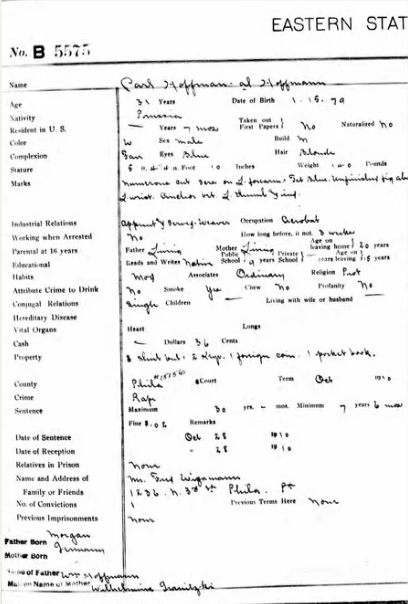 EASTERN STAT
No. B 5575
Name Carl Hoffman al Hoffmann
Age 31 Years Date of Birth 1-15-79
Nativity Prussia
Resident in U. S. — Years 7 mos Taken out First Papers No Naturalized No
Color W Sex male Build M
Complexion Eyes Blue Hair Blonde
Stature 5 Foot Inches Weight Pounds
Marks Numerous cut L. forearm. Blue. Unfinished fig
L. wrist. Anchor L. thumb &
Industrial Relations Weaver Occupation Acrobat
Working when Arrested No How long before, if not. 3 weeks
Parental at 16 years Father Living Mother Living Age on leaving home 20 years
Educational Reads and Writes Native Public School 9 years Private School — Age on years leaving 15 years
Habits Mod Associates Ordinary Religion Prot
Attribute Crime to Drink No Smoke Yes Chew No Profanity No
Conjugal Relations Single Children — Living with wife or husband —
Hereditary Disease
Vital Organs Heart Lungs
Cash — Dollars 36 Cents
Property 2 Keys. 1 foreign coin. 1 pocket book.
County Phila Court Term Oct 1910
Crime Rape
Sentence Maximum 30 yrs. – mos. Minimum 7 years 6 mos
Fine $.02 Remarks
Date of Sentence Oct 28 1910
Date of Reception " 28 1910
Relatives in Prison None
Name and Address of Mr.
Family or Friends 1236. N. 3rd St Phila. Pa
No. of Convictions 1 Previous Terms Here None
Previous Imprisonments None
Morgan
Father Born Germany
Mother Born
Name of Father Wm Hoffmann
Maiden Name of Mother Wilhelmine